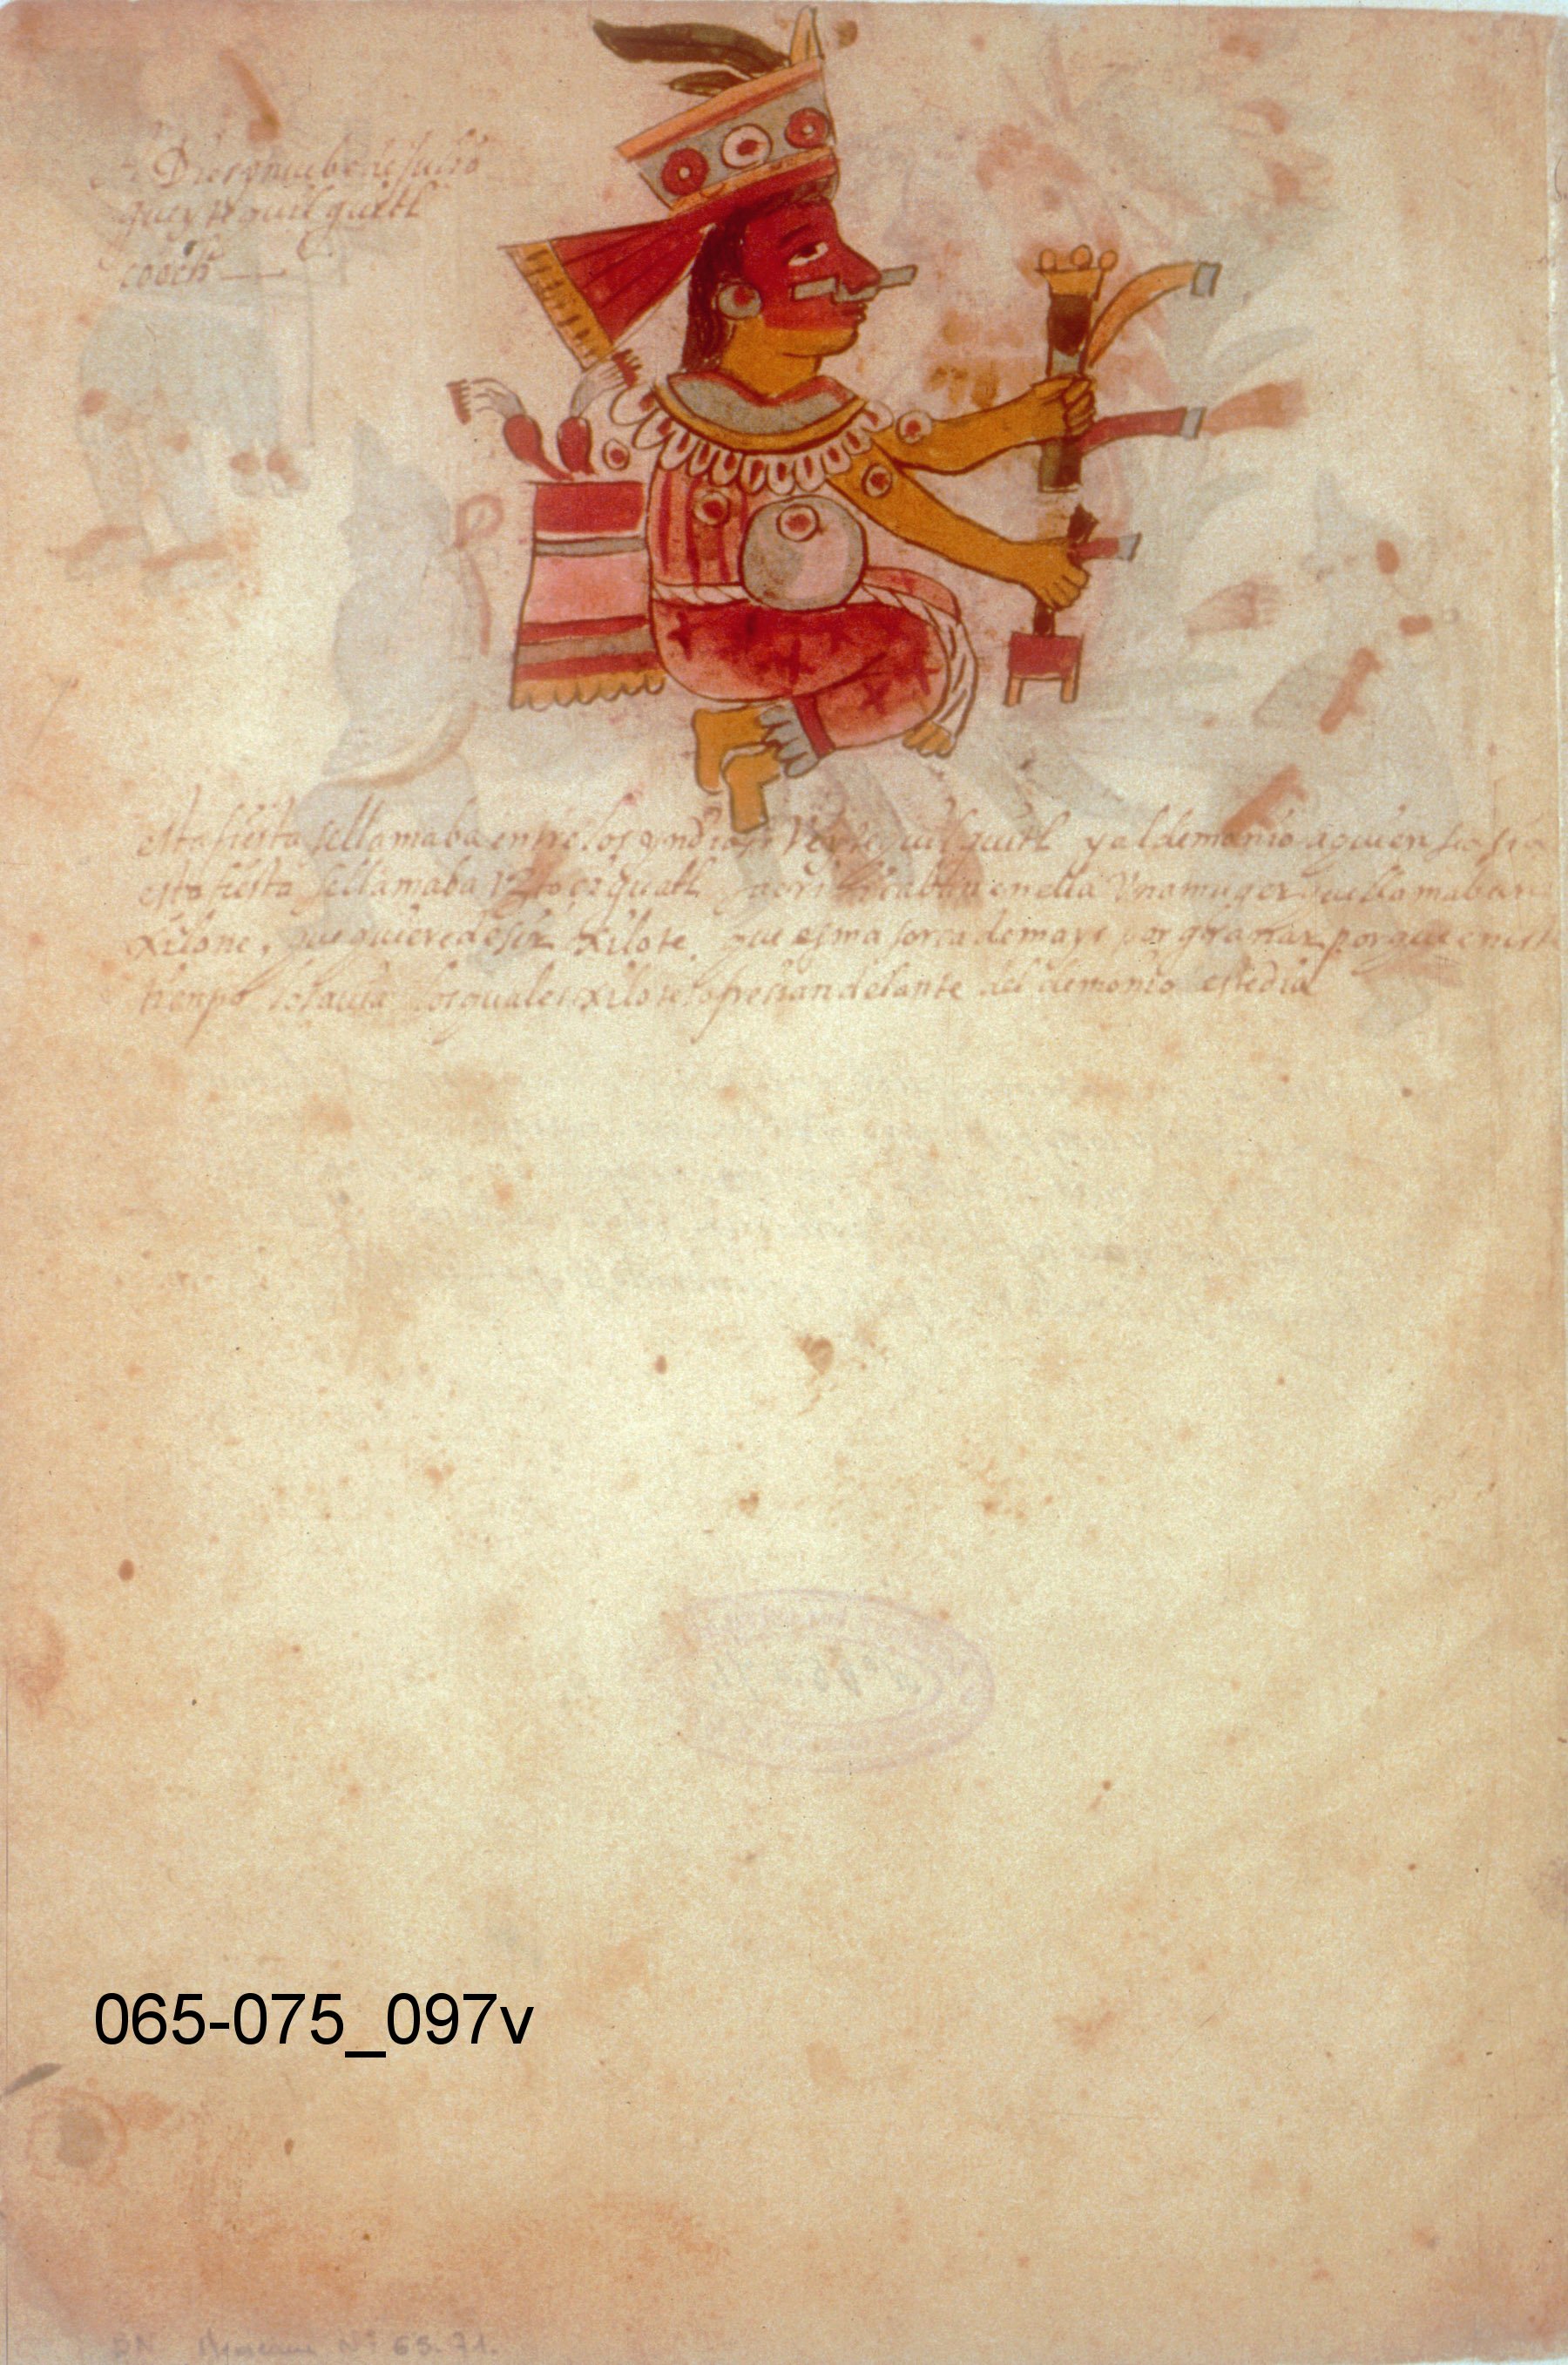 A Diez y nuebe de julio
gueytequilguitl
cooch
esta fiesta sellamaba entre los yndios Veytequilguitl y al demonio a quien se asia
esta fiesta sellamaba sacrificaban en ella Vna muger que llamaban
xilone, que quiere desir xilote, que es ma sorca de mays por granar porque en este
tienpo los auia los quales xilotes ofresian delante del demonio este dia
065-075_097v
Nº 65-71.